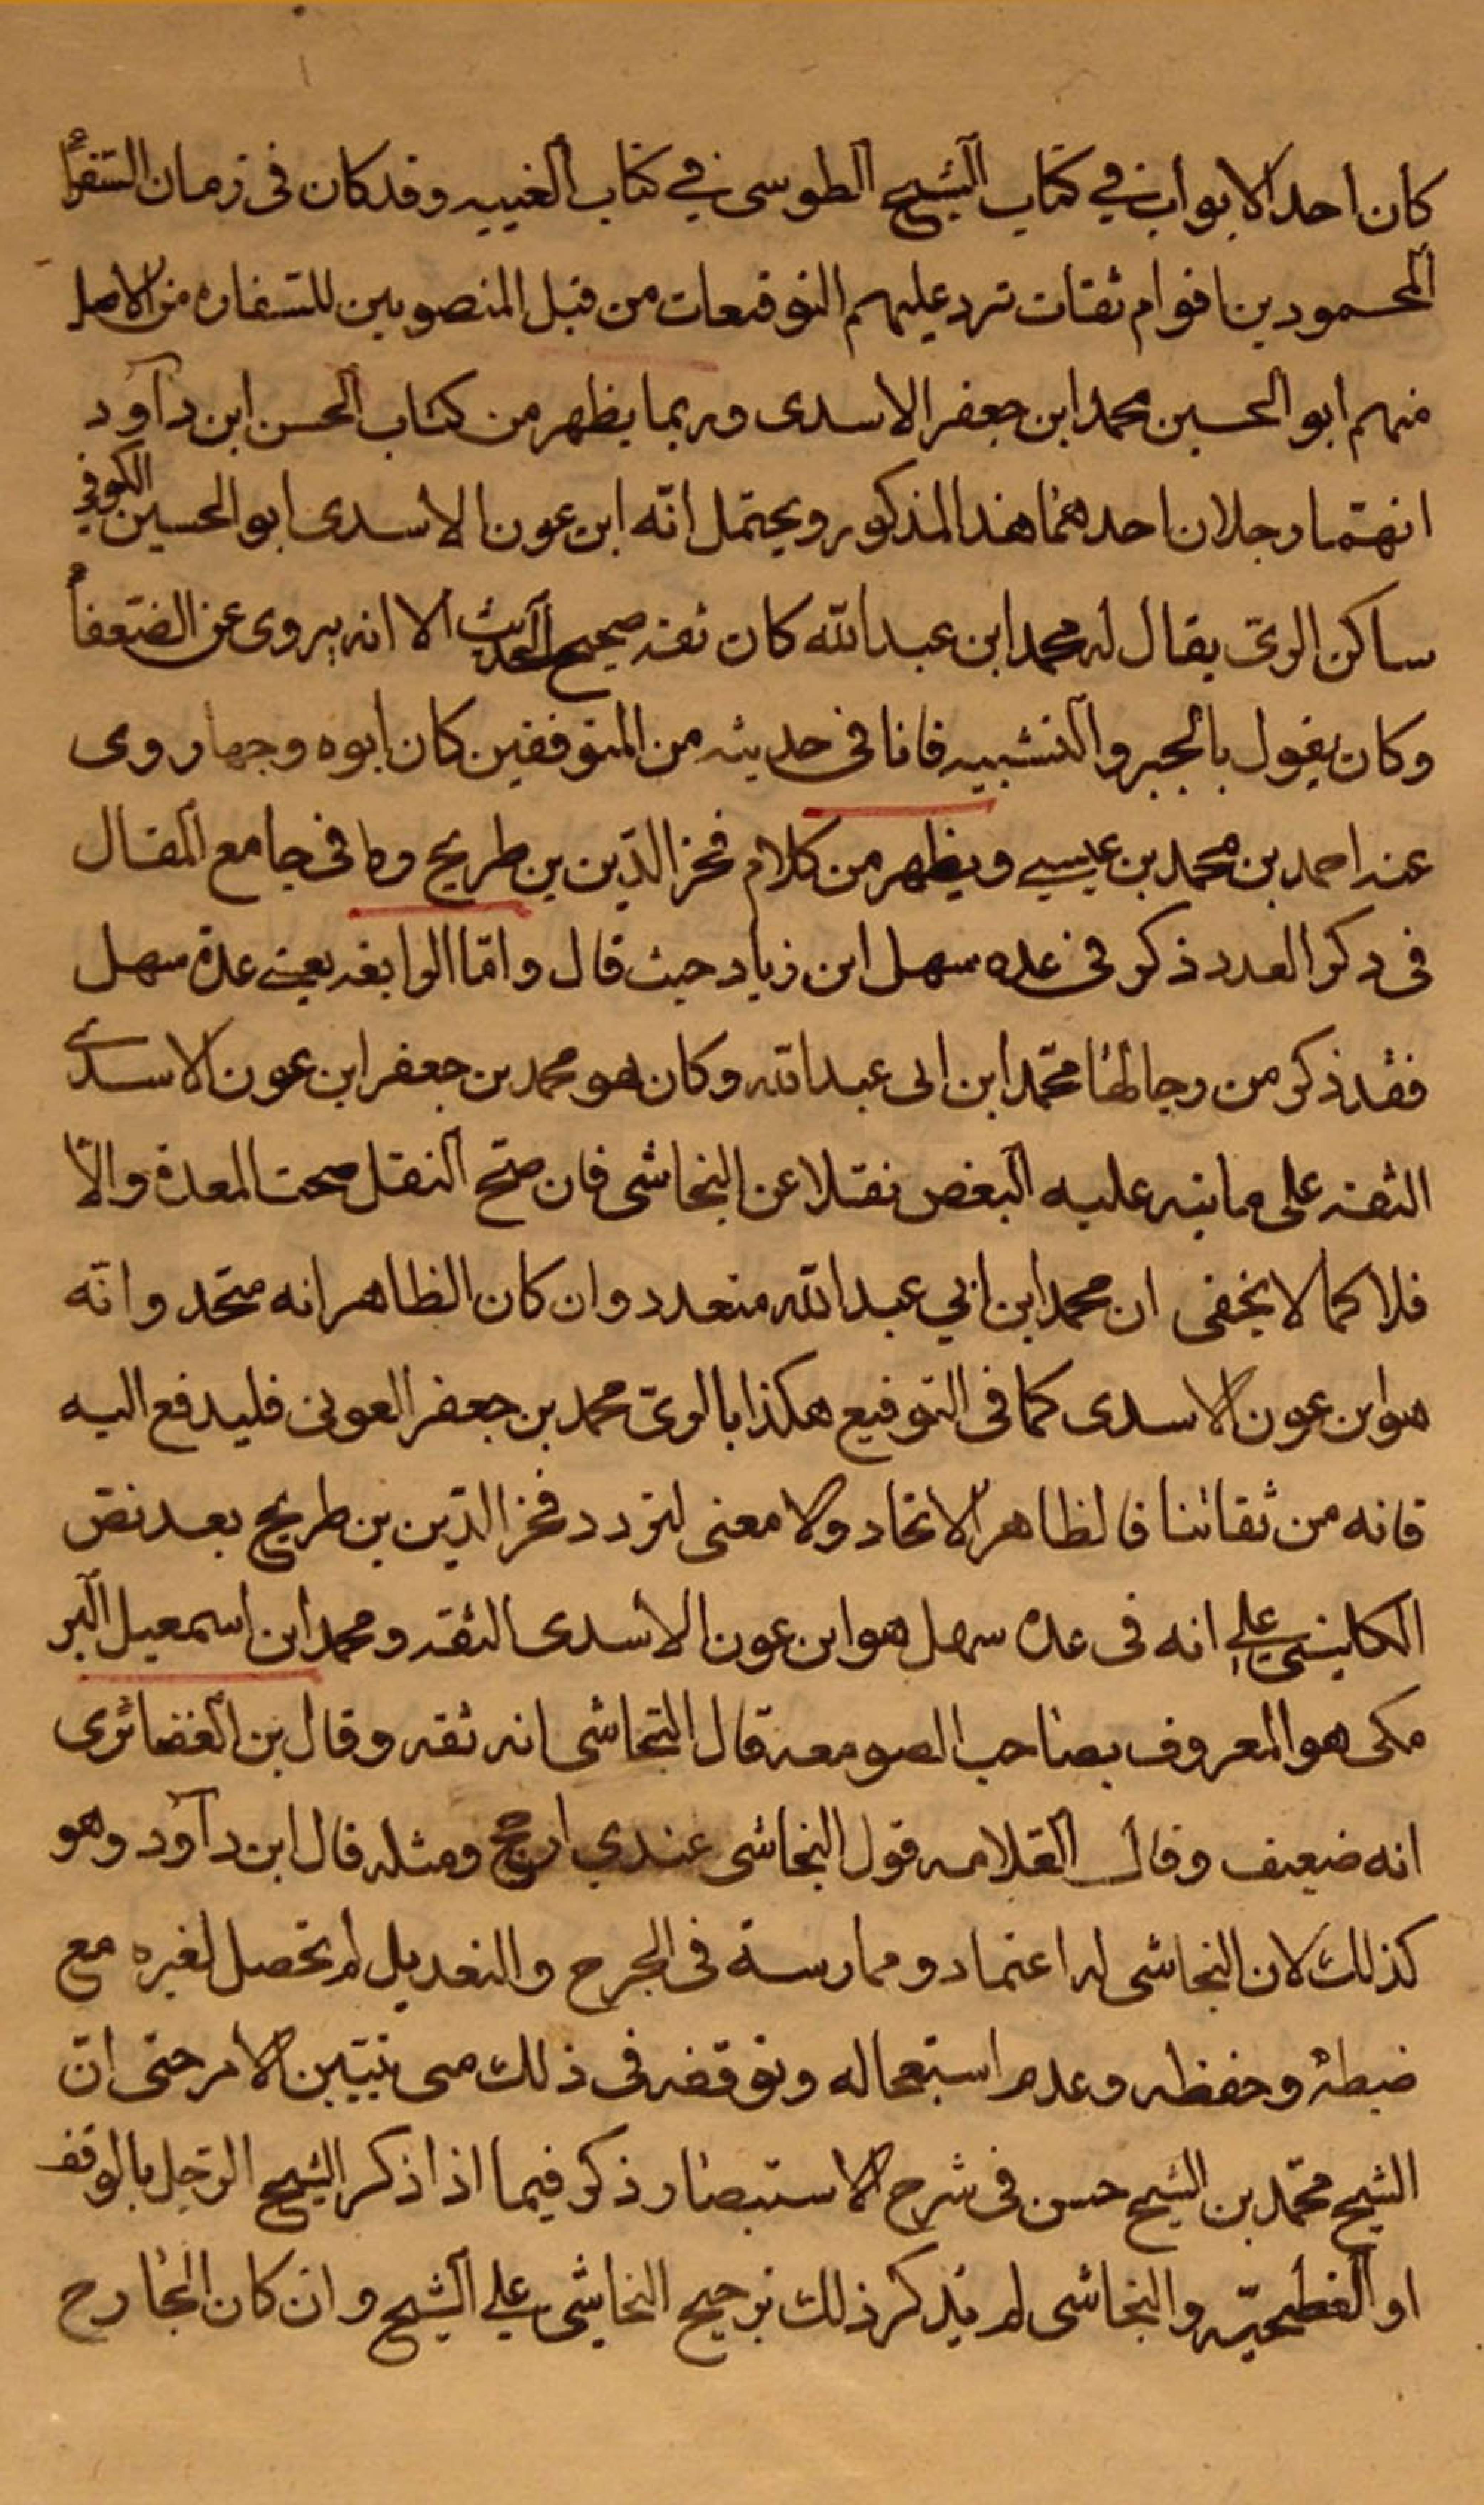 كان احد الابواب في كتاب الشيخ الطوسى في كتاب الغيبه وقد كان فى زمان السفرأ
المحمودين اقوام ثقات ترد عليهم التوقيعات من قبل المنصوبين للسفاره من الاصل
منهم ابو الحسين محمد ابن جعفر الاسدى وربما يظهر من كتاب الحسن ابن دآود
انهما رجلان احدهما هذا المذكور ويحتمل انّه ابن عون الاسدى ابو الحسين الكوفي
ساكن الرىّ يقال له محمد ابن عبد الله كان ثقه صحيح الحديث الا انه يروى عن الضعفأ
وكان يقول بالجبر والتشبيه فانا فى حديثه من المتوقفين كان ابوه وجها روى
عنه احمد بن محمد بن عيسى ويظهر من كلام فخر الدّين بن طريح فى جامع المقال
فى ذكر العدد ذكر فى عده سهل ابن زياد حيث قال وامّا الرابعه يعنى عدة سهل
فقد ذكر من رجالها محمّد ابن ابى عبد الله وكان هو محمد بن جعفر ابن عون الاسدى
الثقه على ما نبه عليه البعض نقلا عن النجاشى فان صحّ النقل صحت العدة والّا
فلا كما لا يخفى ان محمد ابن ابي عبد الله متعدد وان كان الظاهر انه متحد وانّه
هو ابن عون الاسدى كما فى التوقيع هكذا بالرىّ محمد بن جعفر العونى فليدفع اليه
فانه من ثقاتنا فالظاهر الاتحاد ولا معنى لتردد فخر الدّين بن طريح بعد نصّ
الكلينى على انه فى عدة سهل هو ابن عون الاسدى الثقه ومحمد ابن اسمعيل البر
مكى هو المعروف بصاحب الصومعه قال النجاشى انه ثقه وقال بن الغضائرى
انه ضعيف وقال العلامه قول النجاشى عندي ارجح ومثله قال ابن دآود وهو
كذلك لان النجاشى له اعتماد وممارسة فى الجرح والتعديل لم تحصل لغيره مع
ضبطه وحفظه وعدم استعجاله وتوقفه فى ذلك متى تبيّن الامر حتى انّ
الشيخ محمّد بن الشيخ حسن فى شرح الاستبصار ذكر فيما اذا ذكر الشيخ الرّجل بالوقف
او الفطحيّه والنجاشى لم يذكر ذلك ترجيح النجاشى على الشيخ وان كان الجارح